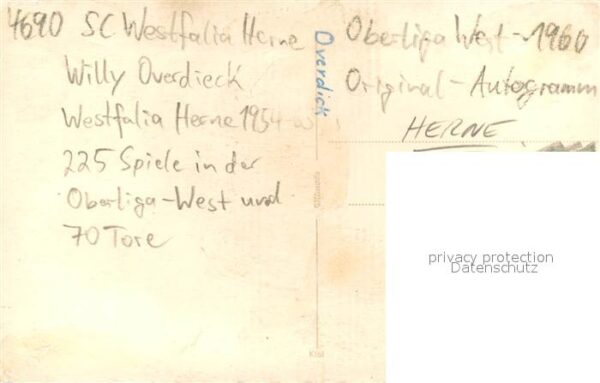 4690 SC Westfalia Herne
Willy Overdieck
Westfalia Herne 1954-63
225 Spiele in der
Oberliga-West und
70 Tore
Overdick
Oberliga West - 1960
Original - Autogramm
HERNE
privacy protection
Datenschutz